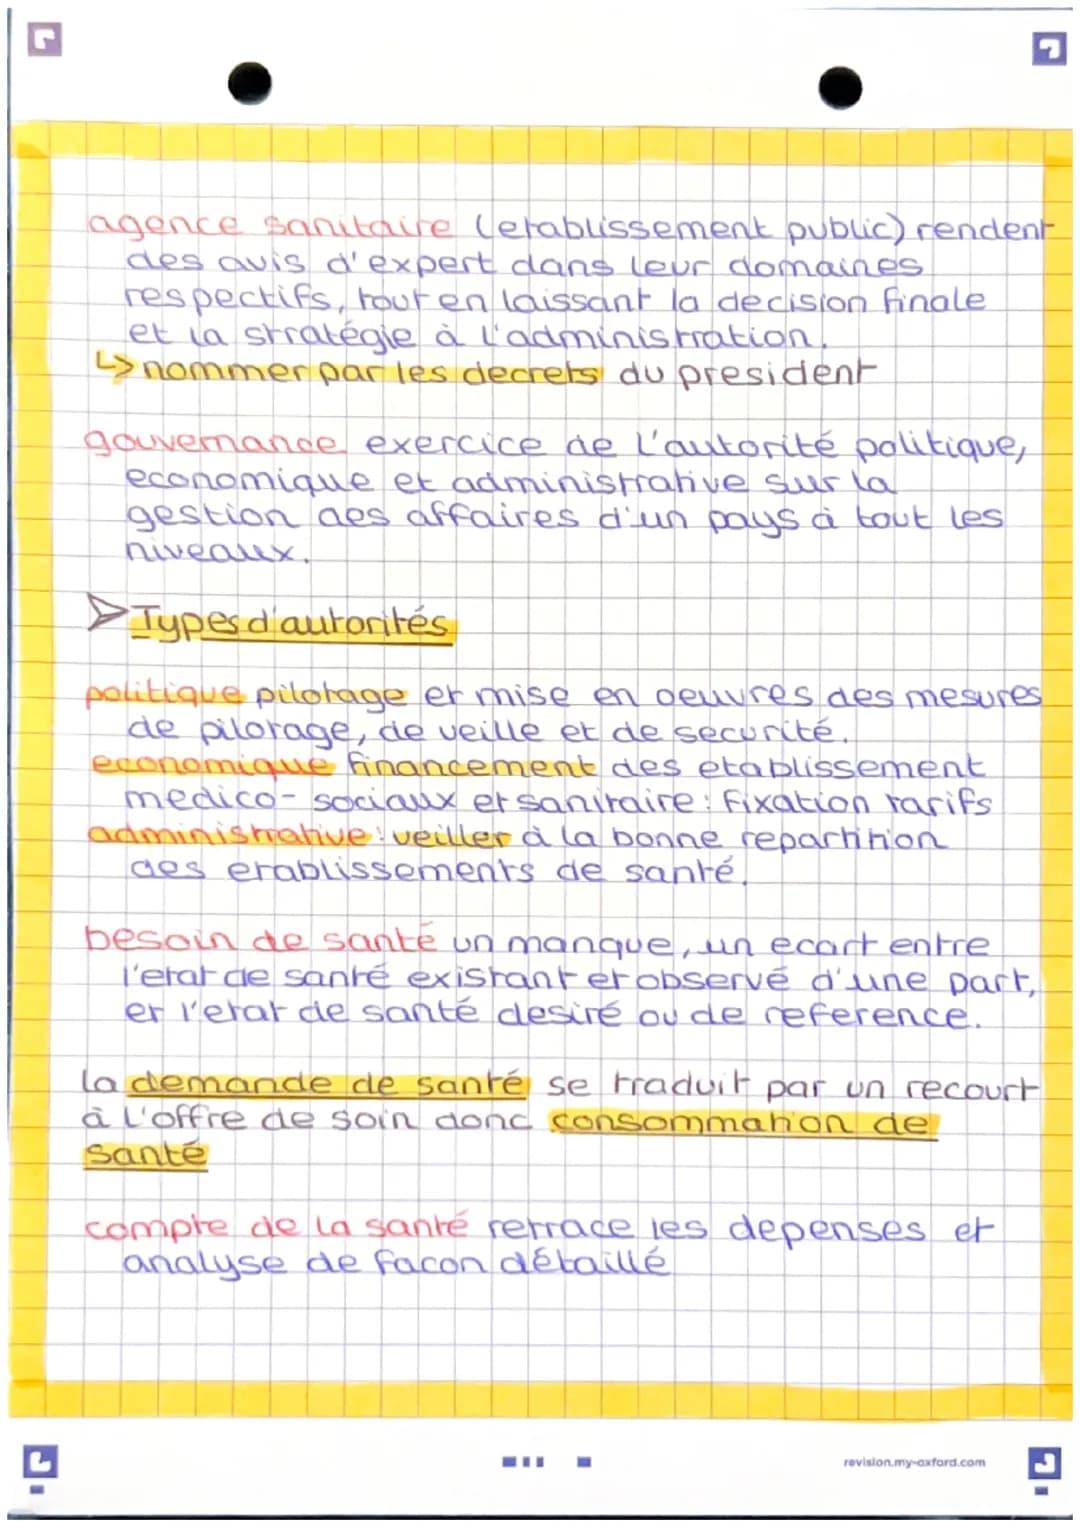 agence sanitaire (etablissement public) rendent
des avis d'expert dans leur domaines
respectifs, tout en laissant la decision finale
et la stratégie à l'administration.
↳ nommer par les decrets du president
gouvernance exercice de l'autorité politique,
economique et administrative sur la
gestion des affaires d'un pays à tout les
niveaux.
➤ Types d'autorités
politique pilotage et mise en oeuvres des mesures
de pilotage, de veille et de securité.
economique financement des etablissement
medico-sociaux et sanitaire : fixation tarifs
administrative : veiller à la bonne repartition
des etablissements de santé.
besoin de santé un manque, un ecart entre
l'etat de santé existant et observé d'une part,
et l'etat de santé desiré ou de reference.
la demande de santé se traduit par un recourt
à l'offre de soin donc consommation de
santé
compte de la santé retrace les depenses et
analyse de facon détaillé
revision.my-oxford.com